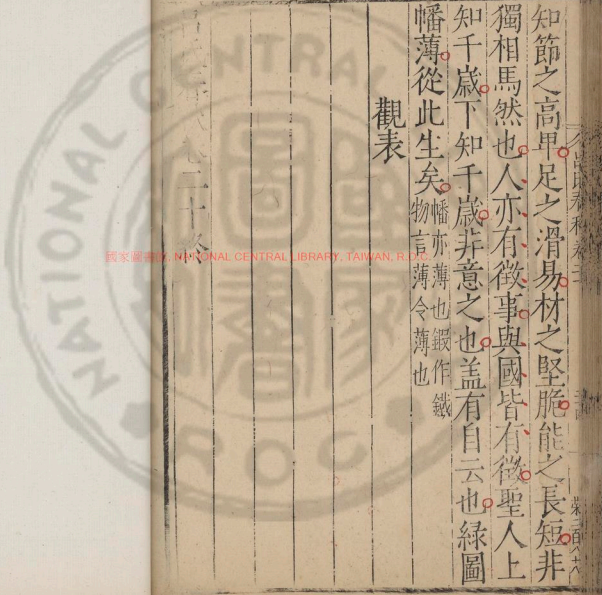 知節之高卑足之滑易材之堅脆能之長短非
獨相馬然也人亦有徵事與國皆有徵聖人上
知千歲下知千歲非意之也盖有自云也綠圖
幡薄從此生矣幡亦薄也鍜作鐵
物言薄令薄也
觀表
二十終
國家圖書館, NATIONAL CENTRAL LIBRARY, TAIWAN, R.O.C.
NATIONAL CENTRAL
R.O.C